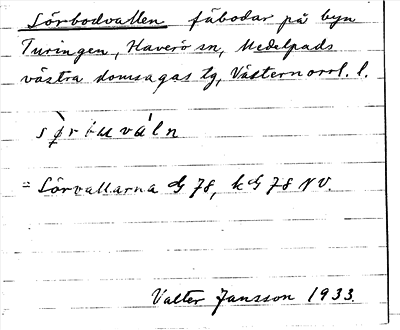 Sörbodvallen fäbodar på byn
Turingen, Haverö sn, Medelpads
västra domsagas tg, Västernorrl. l.
= Sörvallarna G 78, kG 78 NV.
Valter Jansson 1933.